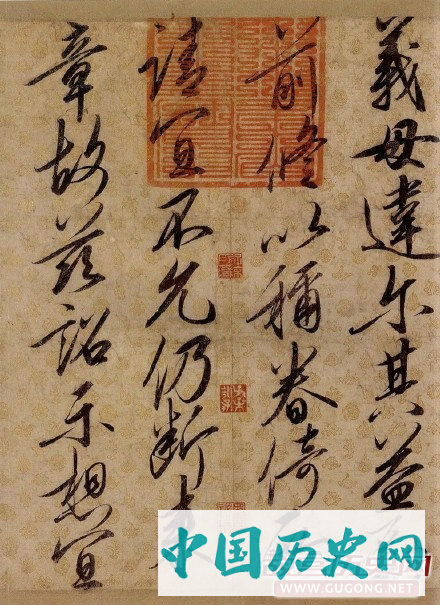 義毋違尔其益
前脩以稱眷倚
請宜不允仍断来
章故兹詔示想宜
中国历史网
WWW.GUGONG.NET